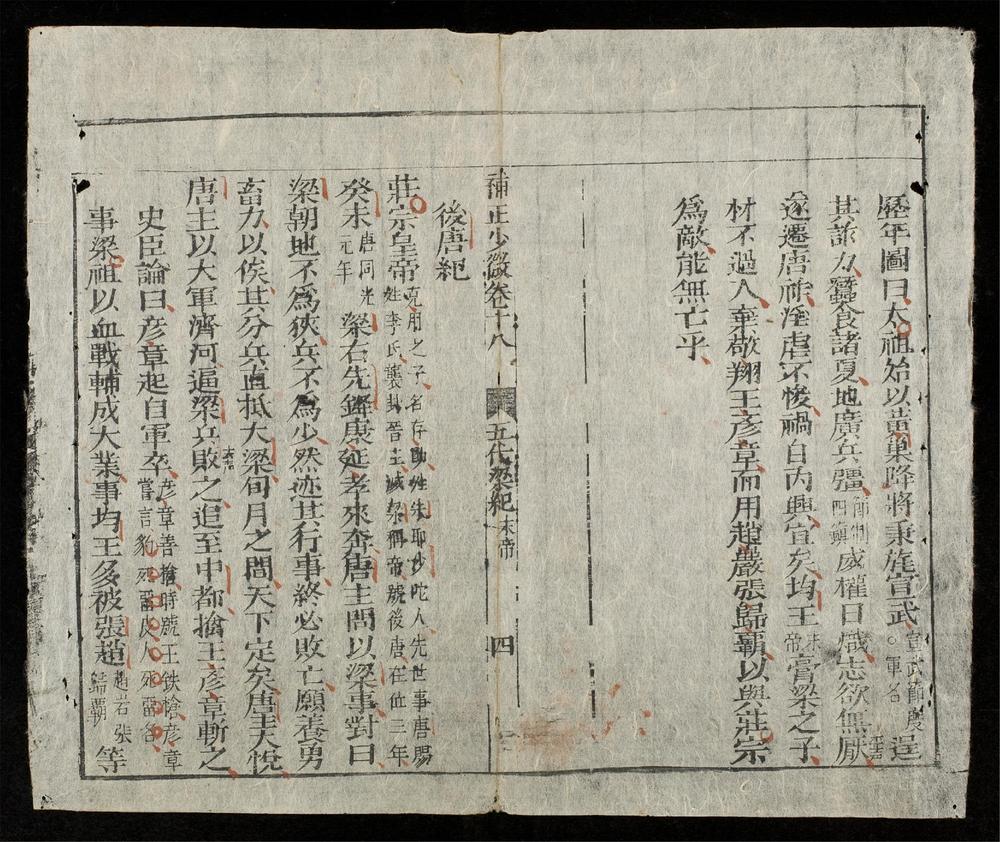 歷年圖曰太祖始以黃巢降將秉旄宣武宣武節度軍名逞
其詐力蠶食諸夏地廣兵彊四鎮威權日熾志欲無厭
遂遷唐祚淫虐不悛禍自內興宜矣均王末帝膏粱之子
材不過人棄敬翔王彥章而用趙巖張歸霸以與莊宗
爲敵能無亡乎
補正少微卷十八 五代梁紀末帝 四
後唐紀
莊宗皇帝克用之子名存勗姓朱耶沙陀人先世事唐賜姓李氏襲封晉王滅梁稱帝號後唐在位三年
癸未唐同光元年梁右先鋒康延孝來奔唐主問以梁事對曰
梁朝地不爲狹兵不爲少然迹其行事終必敗亡願養勇
畜力以俟其分兵直抵大梁旬月之間天下定矣唐主大悅
唐主以大軍濟河逼梁兵敗之追至中都擒王彥章斬之
史臣論曰彥章起自軍卒彥章善槍時號王鉄槍彥章嘗言豹死畱皮人死畱名
事梁祖以血戰輔成大業事均王多被張趙趙岩張歸霸等